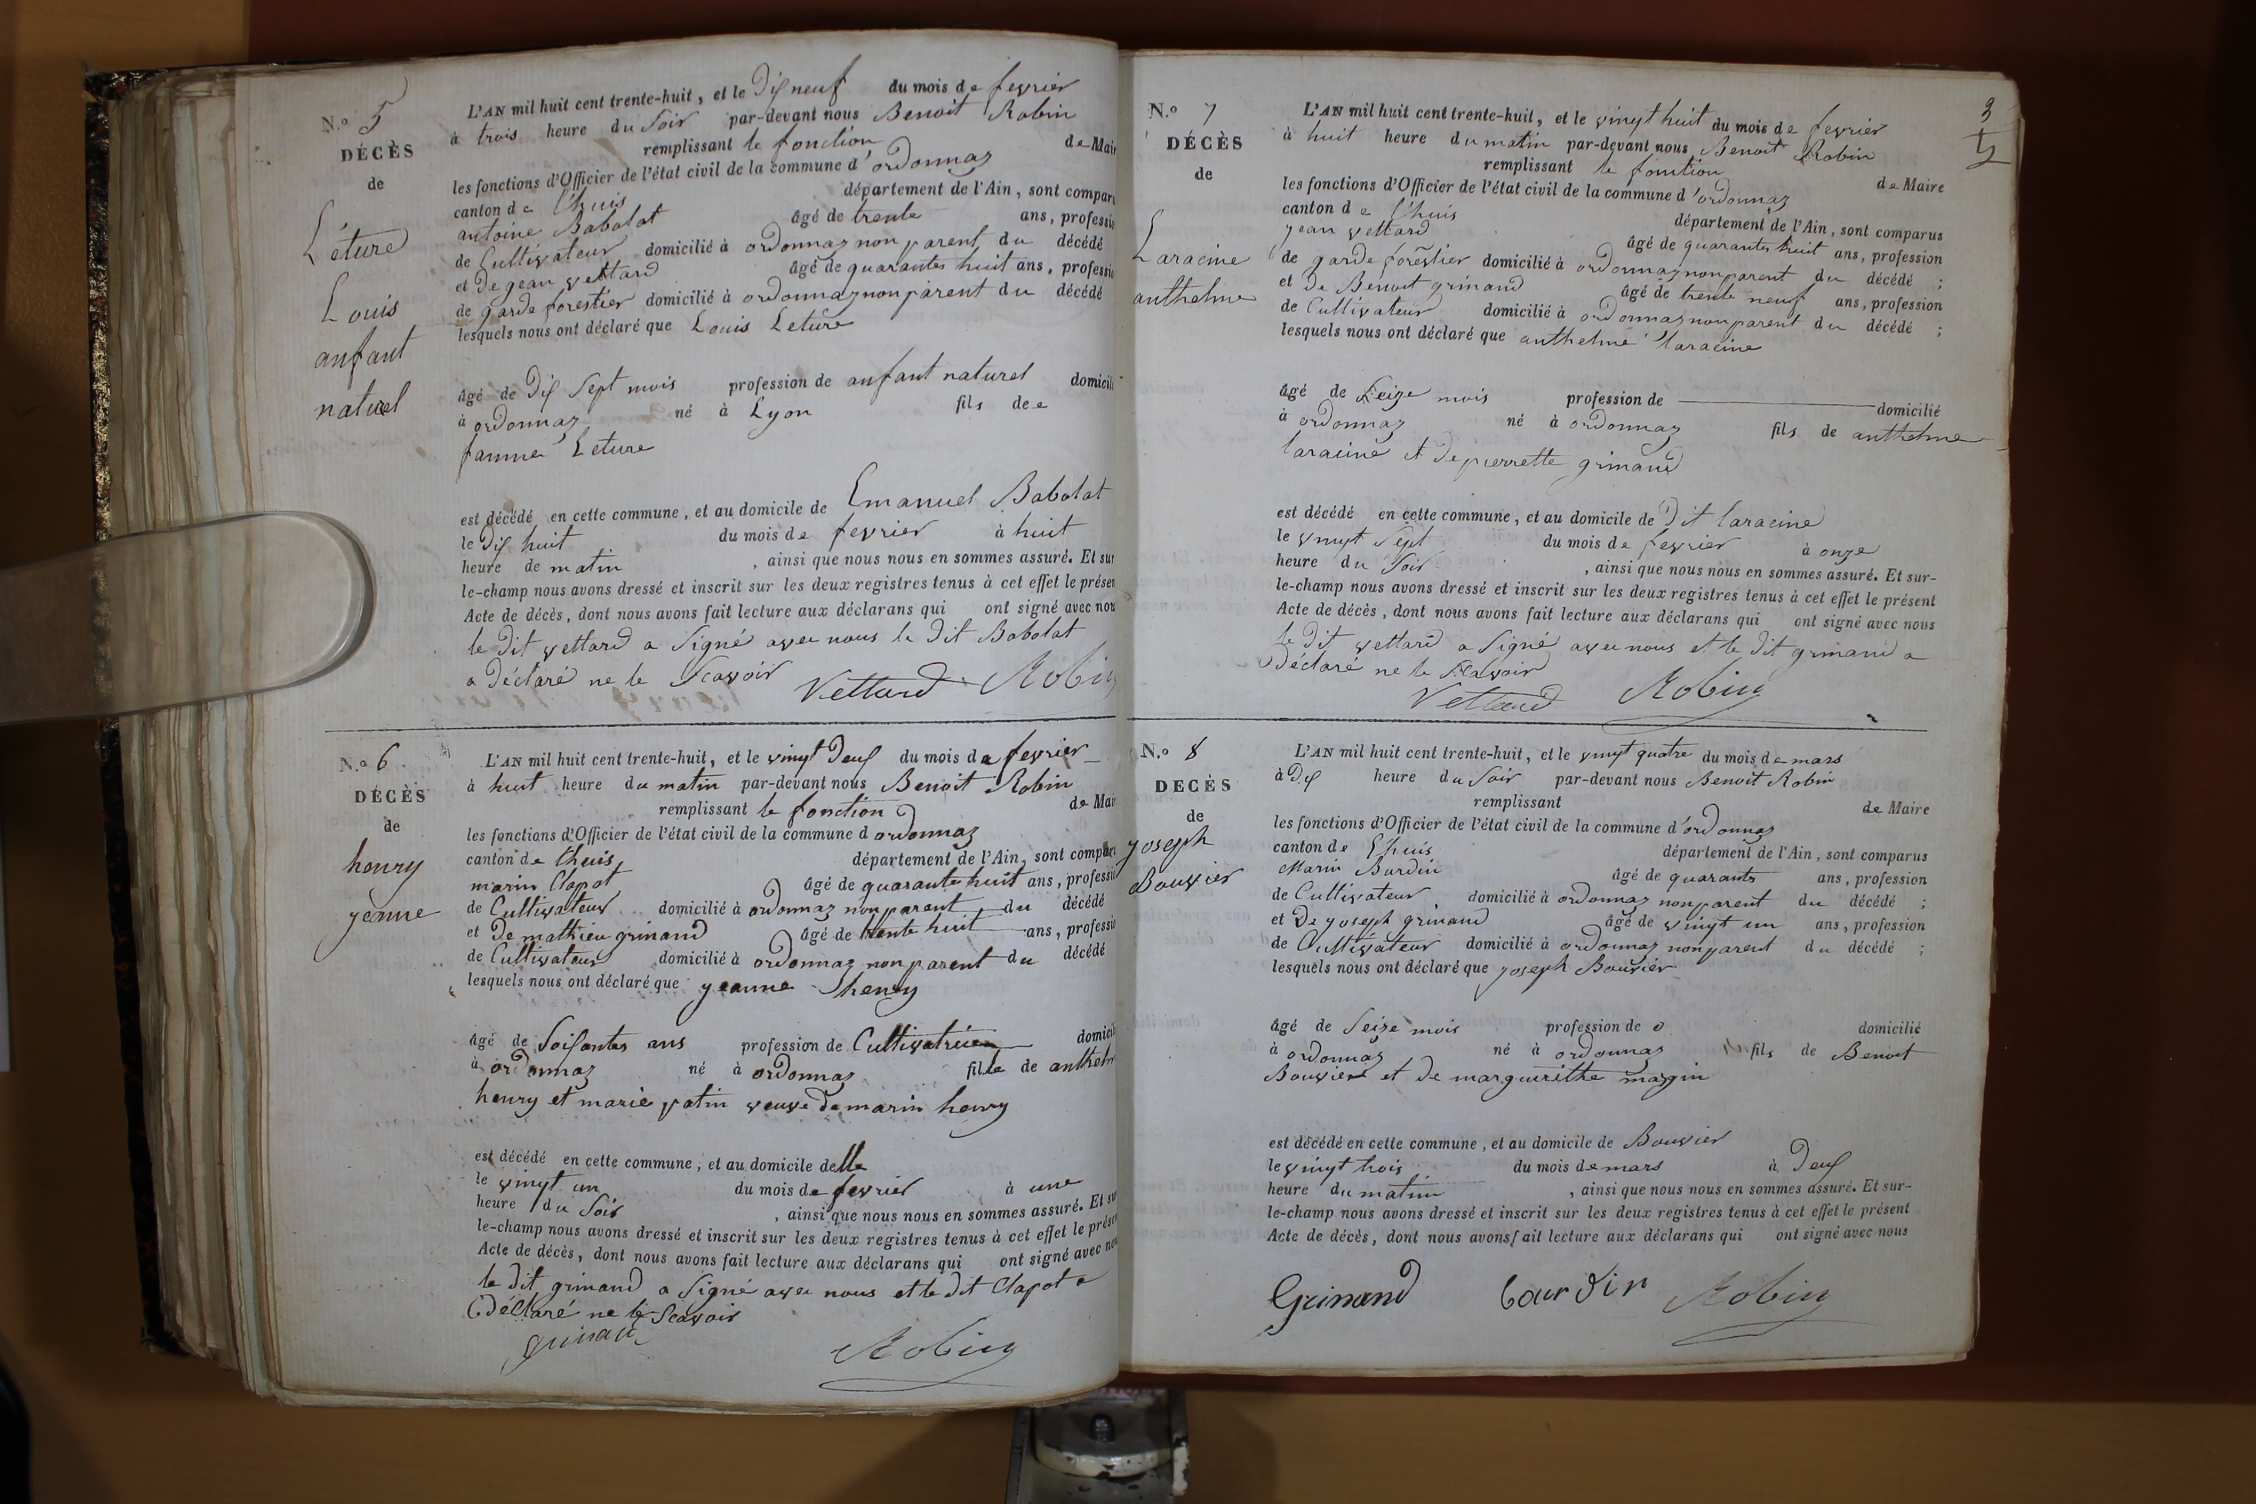 N.o 5
DÉCÈS
de
Léture
Louis
anfant
naturel
L'AN mil huit cent trente-huit, et le Dix neuf du mois de fevrier
à trois heure du Soir par-devant nous Benoit Robin
remplissant le fonction de Mair
les fonctions d'Officier de l'état civil de la commune d'ordonnaz
canton de Lhuis département de l'Ain, sont compar
antoine Babolat âgé de trente ans, professio
de Cultivateur domicilié à ordonnaz non parent du décédé
et De gean vettard âgé de quarantes huit ans, professio
de garde forestier domicilié à ordonnaz non parent du décédé
lesquels nous ont déclaré que Louis Leture
âgé de Dix Sept mois profession de anfant naturel domicili
à ordonnaz né à Lyon fils de e
fanne Leture
est décédé en cette commune, et au domicile de Emanuel Babolat
le Dix huit du mois de fevrier à huit
heure de matin , ainsi que nous nous en sommes assuré. Et sur
le-champ nous avons dressé et inscrit sur les deux registres tenus à cet effet le présen
Acte de décès, dont nous avons fait lecture aux déclarans qui ont signé avec nou
le Dit vettard a Signé avec nous le Dit Babolat
a Déclaré ne le Scavoir Vettard Robin
N.o 6
DÉCÈS
de
henry
yeanne
L'AN mil huit cent trente-huit, et le vingt Deux du mois de fevrier
à huit heure du matin par-devant nous Benoit Robin
remplissant le fonction de Mair
les fonctions d'Officier de l'état civil de la commune d ordonnaz
canton de Lhuis département de l'Ain, sont compar
marin Clapot âgé de quarante huit ans, professio
de Cultivateur domicilié à ordonnaz non parent du décédé
et De mathieu grinand âgé de trente huit ans, professio
de Cultivateur domicilié à ordonnaz non parent du décédé
lesquels nous ont déclaré que yeanne henry
âgé de Soixantes ans profession de Cultivatrice domicil
à ordonnaz né à ordonnaz fille de anthelm
henry et marie patin veuve de marin henry
est décédé en cette commune, et au domicile delle
le vingt un du mois de fevrier à une
heure du Soir , ainsi que nous nous en sommes assuré. Et su
le-champ nous avons dressé et inscrit sur les deux registres tenus à cet effet le prése
Acte de décès, dont nous avons fait lecture aux déclarans qui ont signé avec nou
le Dit grinand a Signé avec nous et le Dit Clapot a
Déclaré ne le Scavoir
grinan Robin
3
N.o 7
DÉCÈS
de
Laracine
anthelme
L'AN mil huit cent trente-huit, et le vingt huit du mois de fevrier
à huit heure du matin par-devant nous Benoit Robin
remplissant le fonction de Maire
les fonctions d'Officier de l'état civil de la commune d'ordonnaz
canton de Lhuis département de l'Ain, sont comparus
yean vettard âgé de quarantes huit ans, profession
de garde forestier domicilié à ordonnaz non parent du décédé ;
et De Benoit grinand âgé de trente neuf ans, profession
de Cultivateur domicilié à ordonnaz non parent du décédé ;
lesquels nous ont déclaré que anthelme laracine
âgé de Seize mois profession de domicilié
à ordonnaz né à ordonnaz fils de anthelme
laracine et De pierrette grinand
est décédé en cette commune, et au domicile de Dit laracine
le vingt Sept du mois de fevrier à onze
heure du Soir , ainsi que nous nous en sommes assuré. Et sur-
le-champ nous avons dressé et inscrit sur les deux registres tenus à cet effet le présent
Acte de décès, dont nous avons fait lecture aux déclarans qui ont signé avec nous
le Dit vettard a Signé avec nous et le Dit grinand a
Déclaré ne le Scavoir
Vettard Robin
N.o 8
DECÈS
de
yoseph
Bouvier
L'AN mil huit cent trente-huit, et le vingt quatre du mois de mars
à Dix heure du Soir par-devant nous Benoit Robin
remplissant de Maire
les fonctions d'Officier de l'état civil de la commune d'ordonnaz
canton de Lhuis département de l'Ain, sont comparus
Marin Burdin âgé de quarants ans, profession
de Cultivateur domicilié à ordonnaz non parent du décédé ;
et De yoseph grinand âgé de vingt un ans, profession
de Cultivateur domicilié à ordonnaz non parent du décédé ;
lesquels nous ont déclaré que yoseph Bouvier
âgé de Seize mois profession de o domicilié
à ordonnaz né à ordonnaz fils de Benoit
Bouvier et De marguerithe maggin
est décédé en cette commune, et au domicile de Bouvier
le vingt trois du mois de mars à Deux
heure du matin , ainsi que nous nous en sommes assuré. Et sur-
le-champ nous avons dressé et inscrit sur les deux registres tenus à cet effet le présent
Acte de décès, dont nous avons fait lecture aux déclarans qui ont signé avec nous
Grinand bourdin Robin